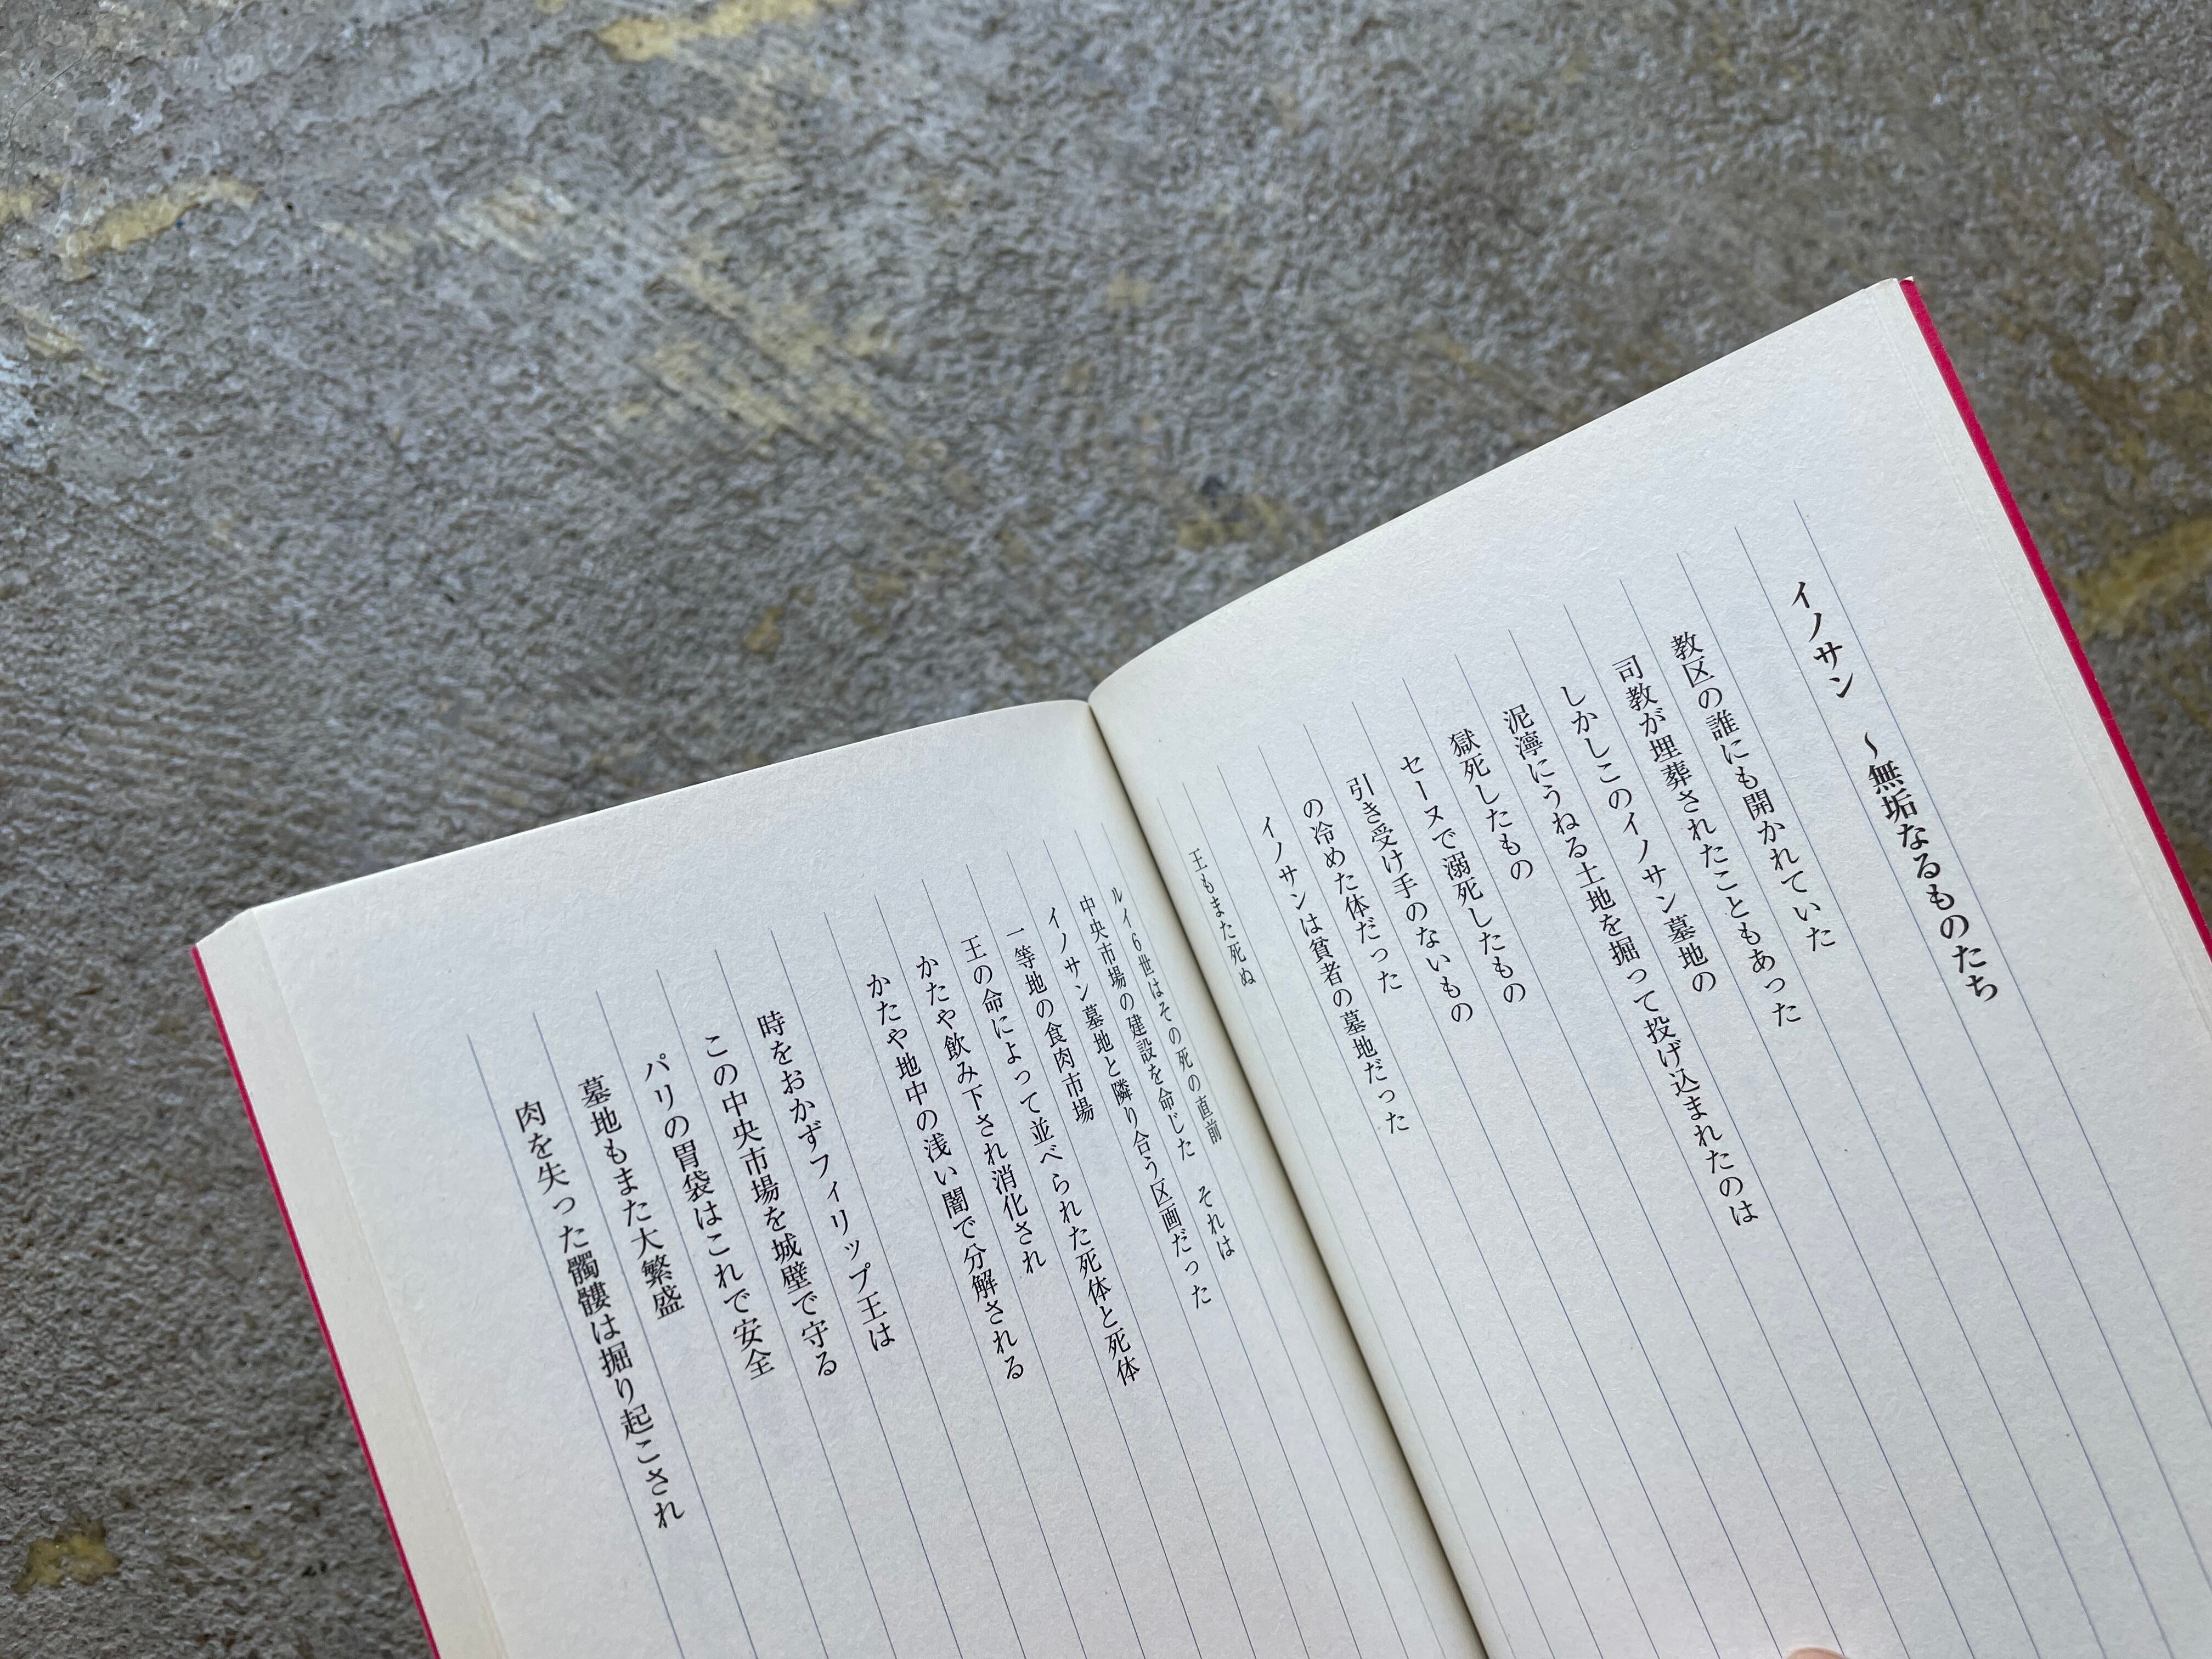 イノサン　〜無垢なるものたち
教区の誰にも開かれていた
司教が埋葬されたこともあった
しかしこのイノサン墓地の
泥濘にうねる土地を掘って投げ込まれたのは
獄死したもの
セーヌで溺死したもの
引き受け手のないもの
の冷めた体だった
イノサンは貧者の墓地だった
王もまた死ぬ
ルイ6世はその死の直前
中央市場の建設を命じた　それは
イノサン墓地と隣り合う区画だった
一等地の食肉市場
王の命によって並べられた死体と死体
かたや飲み下され消化され
かたや地中の浅い闇で分解される
時をおかずフィリップ王は
この中央市場を城壁で守る
パリの胃袋はこれで安全
墓地もまた大繁盛
肉を失った髑髏は掘り起こされ